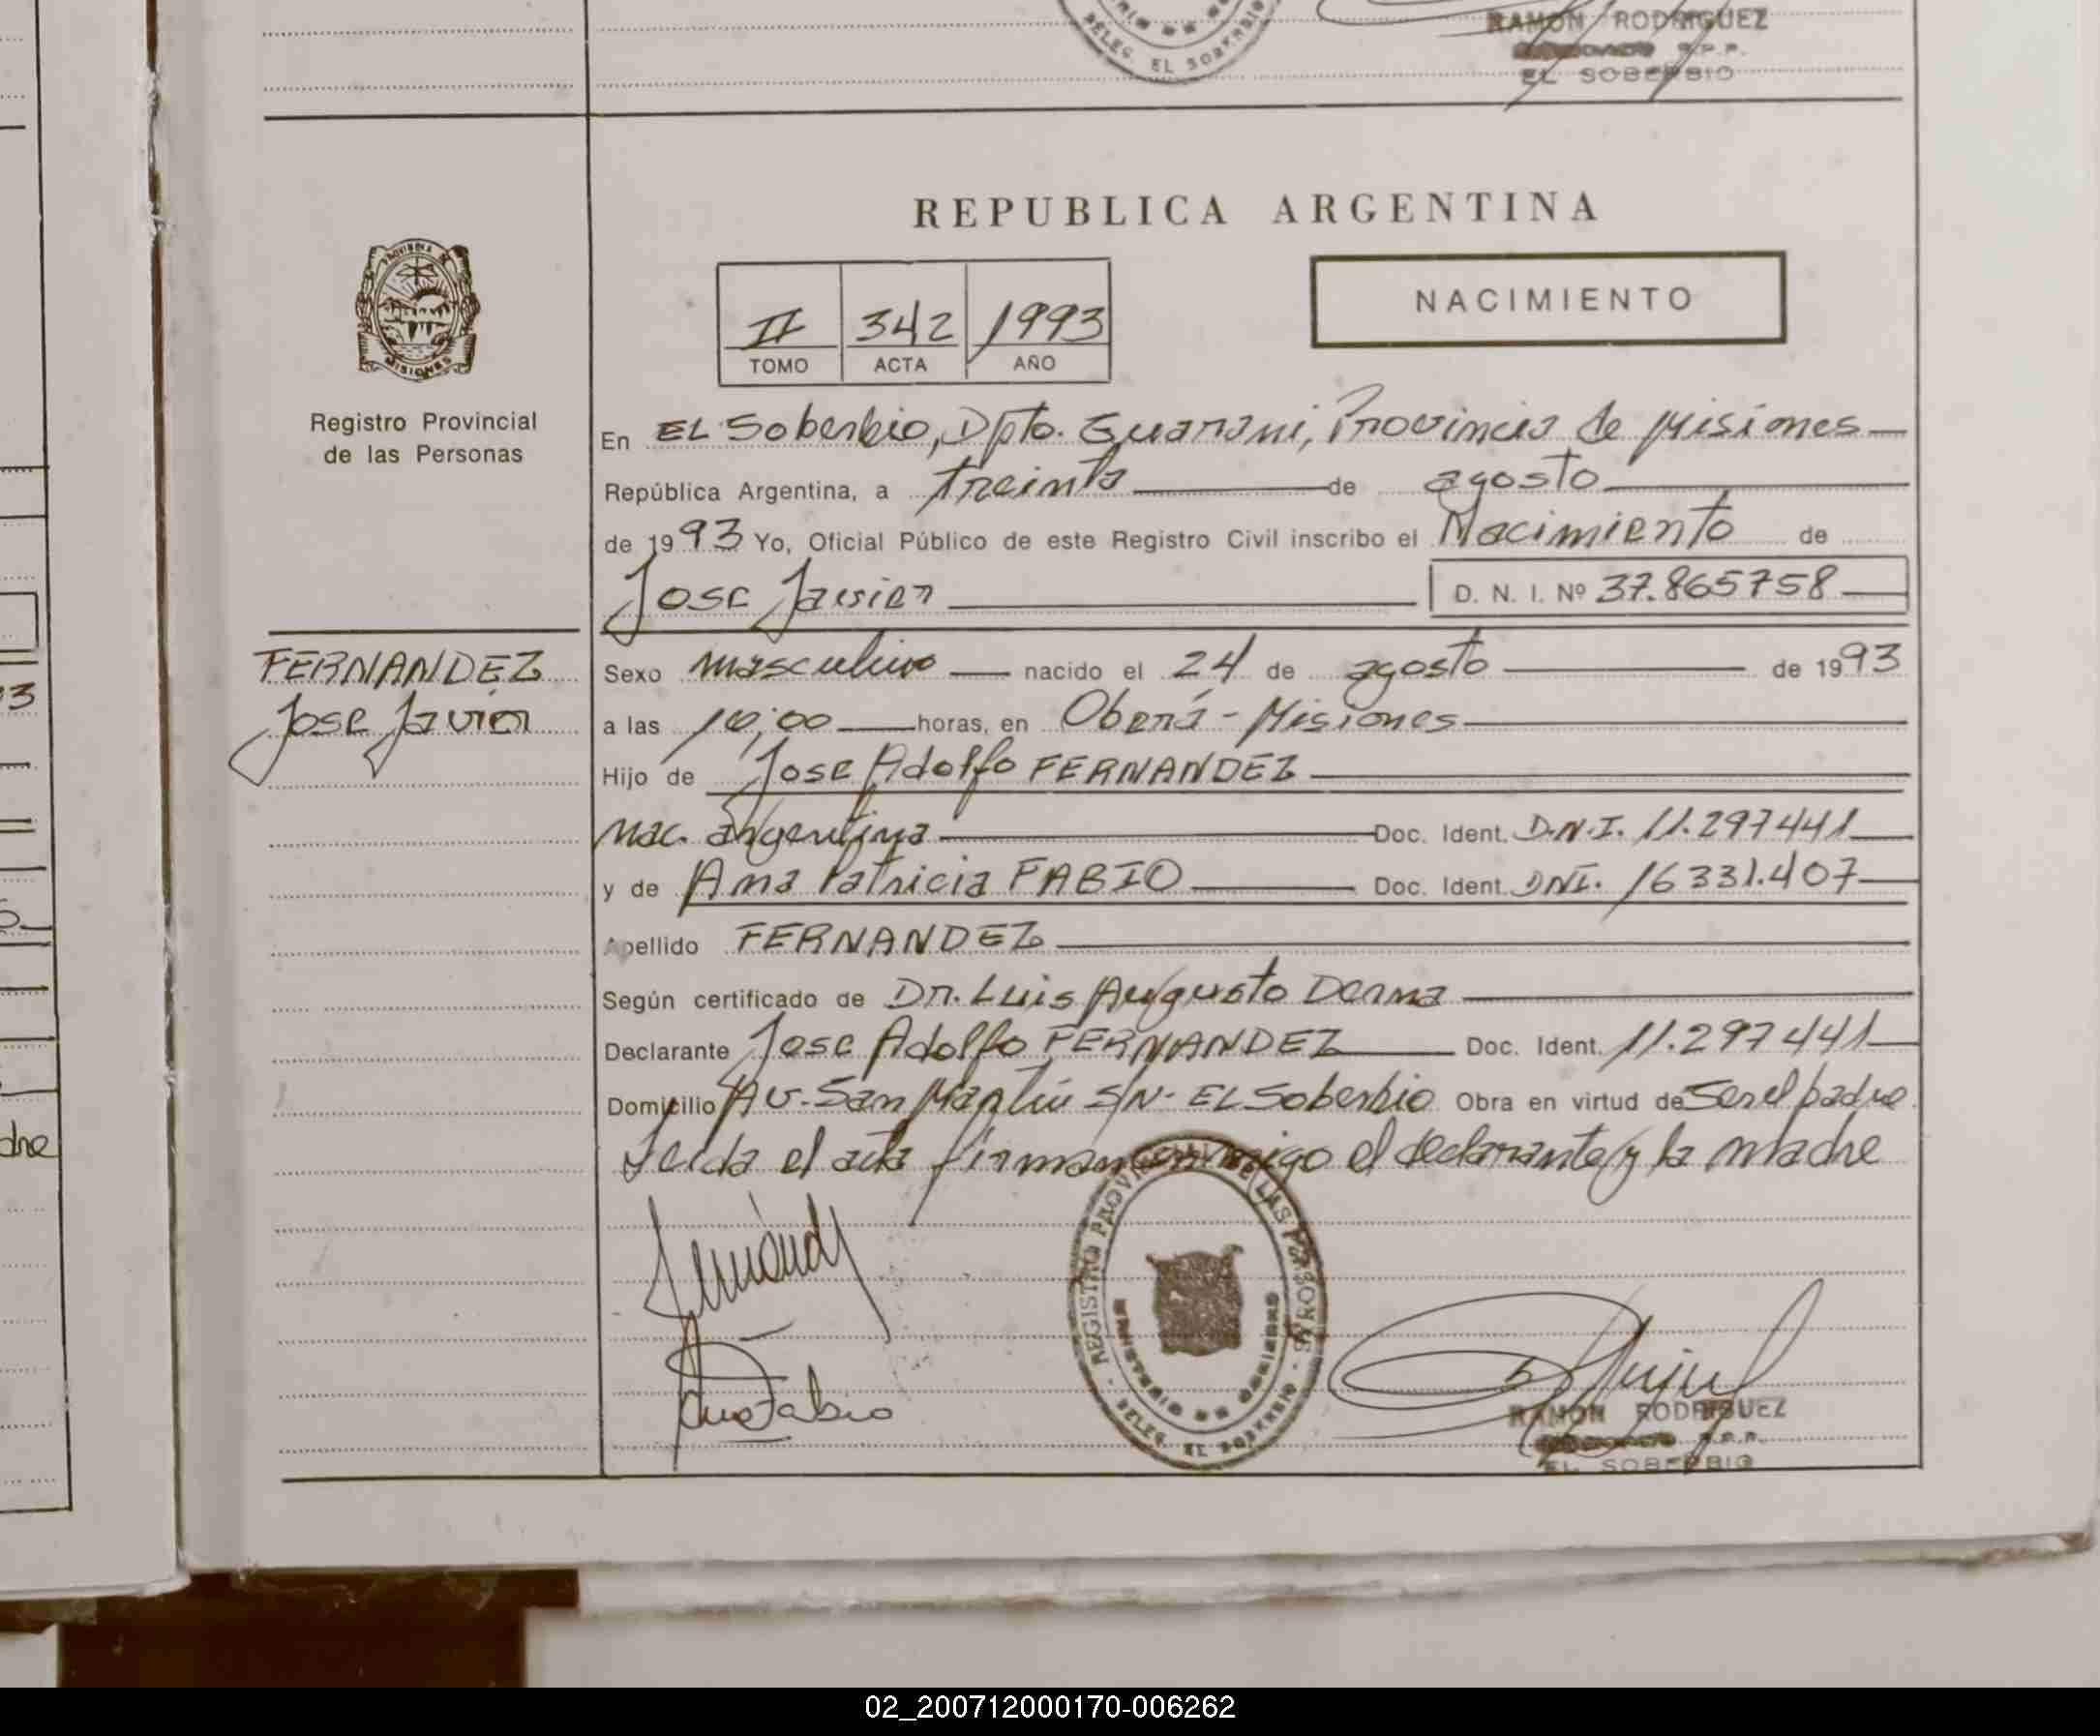 RAMON RODRIGUEZ
R.P.P.
DELEG. EL SOBERBIO
EL SOBERBIO
REPUBLICA ARGENTINA
NACIMIENTO
II 342 1993
TOMO ACTA AÑO
PROVINCIA DE MISIONES
Registro Provincial
de las Personas
En EL Soberbio, Dpto. Guarani, Provincia de Misiones
República Argentina, a treinta de agosto
de 1993 Yo, Oficial Público de este Registro Civil inscribo el Nacimiento de
Jose Javier D. N. I. Nº 37.865758
FERNANDEZ
Jose Javier
Sexo masculino nacido el 24 de agosto de 1993
a las 10,00 horas, en Oberá - Misiones
Hijo de Jose Adolfo FERNANDEZ
nac. argentina Doc. Ident. D.N.I. 11.297441
y de Ana Patricia FABIO Doc. Ident. DNI. 16331.407
Apellido FERNANDEZ
Según certificado de Dr. Luis Augusto Derna
Declarante Jose Adolfo FERNANDEZ Doc. Ident. 11.297441
Domicilio AV. San Martín S/N - EL Soberbio Obra en virtud de ser el padre
Leida el acta firman conmigo el declarante y la madre
REGISTRO PROVINCIAL DE LAS PERSONAS
MINISTERIO DE GOBIERNO
DELEG. EL SOBERBIO
Ana Fabio
RAMON RODRIGUEZ
R.P.P.
EL SOBERBIO
93
dre
02_200712000170-006262